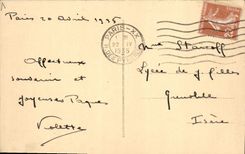 Paris 20 Avril 1935
Affectueux
souvenir et
joyeuses Pâques
Violette
PARIS-XX
1935
Lycée de j. filles
Grenoble
Isère